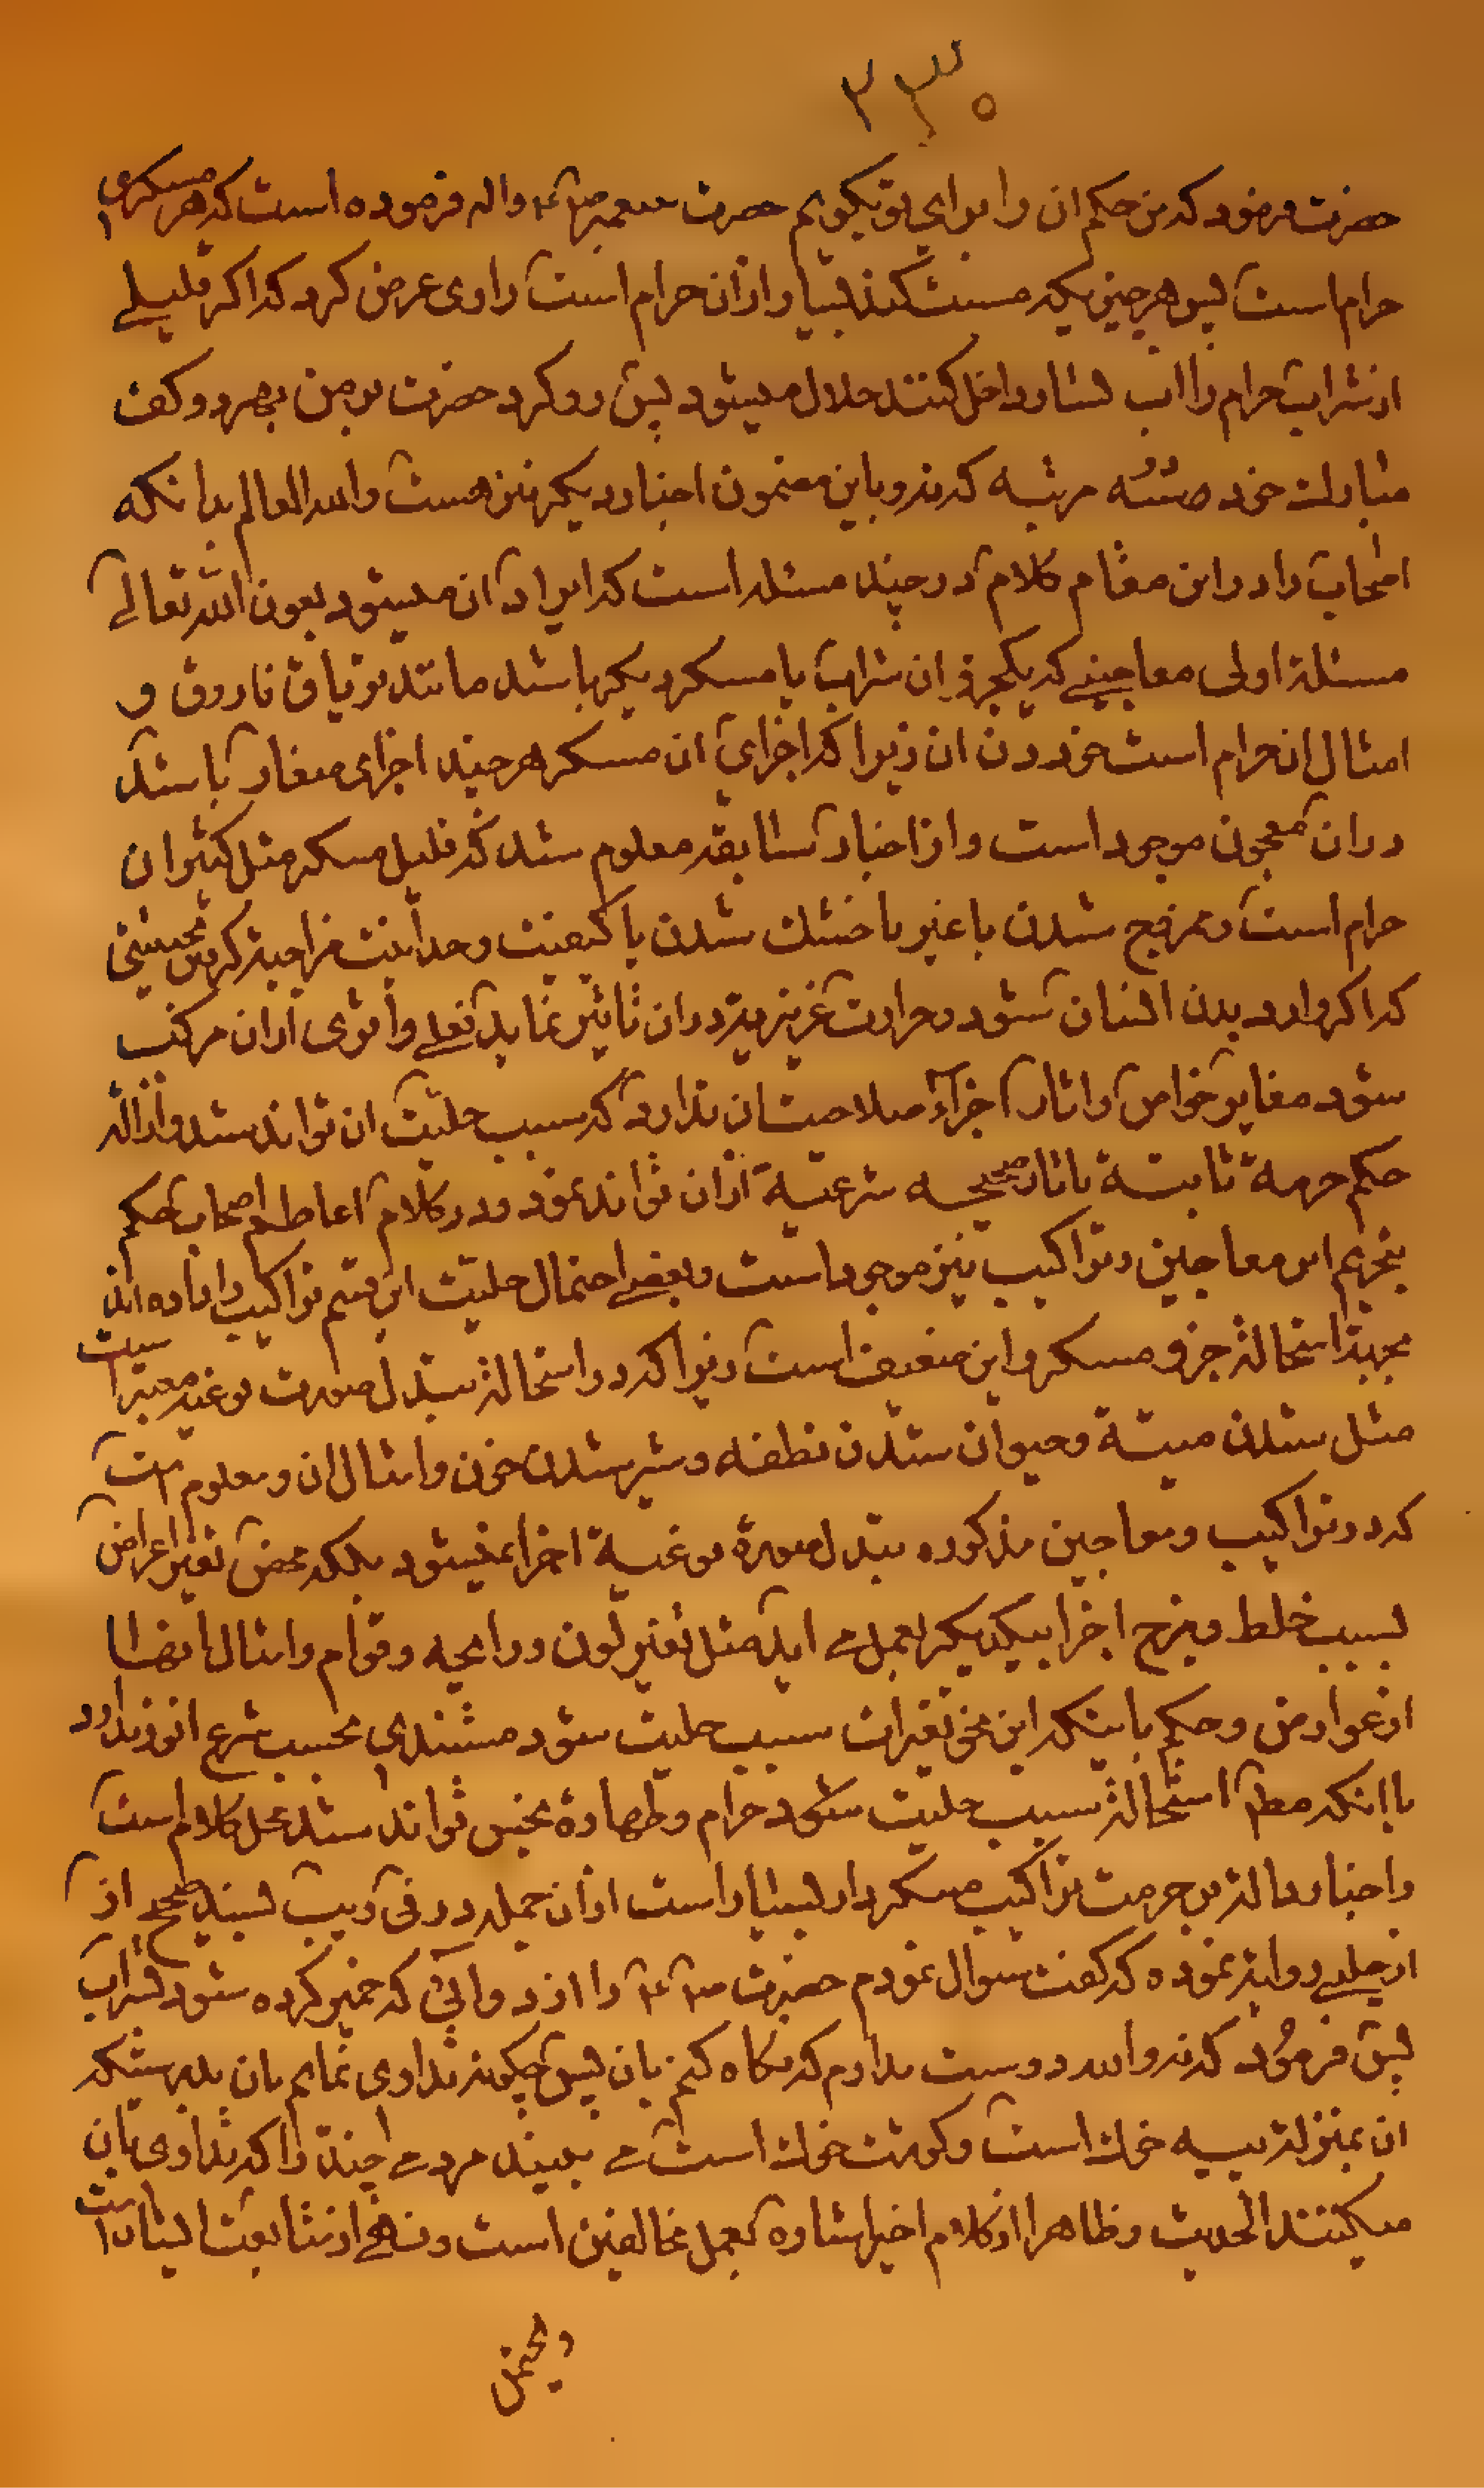 ۲۳۰
حضرت فرمود که من حکم ان را برای تو بکویم حضرت پیغمبر ص ع واله فرموده است که هر مسکری
حرام است پس هر چیزیکه مست کند بسیار ازان حرام است راوی عرض کرد که اکر قلیلے
از شراب حرام را اب بسیار داخل کنند حلال میشود پس رو کرد حضرت بر من بهر دو کف
مبارک خود مرتبه که نه و باین مضمون اخبار دیکر نیز هست والله العالم بدانکه
اصحاب را در این مقام کلام در چند مسئله است که ایراد ان میشود بعون الله تعالے
مسئلة اولی معاجینے که یکجزو ان شراب یا مسکر دیکر باشد مانند تریاق فاروق و
امثال ان حرام است خوردن ان زیرا که اجزای ان مسکر هر چند اجزای صغار باشد
در ان معجون موجود است و از اخبار سابقه معلوم شد که قلیل مسکر مثل کثیر ان
حرام است و ممزوج شدن با غیر یا خشک شدن یا کیفیت وحدانیت مزاجیة کرفتن بحیثیتی
که اکر وارد بدن انسان شود و حرارت غریزیة در ان تاثیر نماید فعلے و اثری از ان مرکب
شود مغایر خواص و اثار اجزاء صلاحیت ان ندارد که سبب حلیت ان تواند شد و ازاله
حکم حرمة ثابتة باثار صحیحه شرعیة ازان تواند نمود و در کلام اعاظم اصحاب حکم
بتحریم این معاجین و تراکیب نیز موجود است و بعضے احتمال حلیت این قسم تراکیب را داده اند
بجهة استحالة جزو مسکر و این ضعیف است زیرا که در استحالة تبدل صورت نوعیه معتبر است
مثل شدن میتة و حیوان شدن نطفه و شیر شدن خون و امثال ان و معلوم است
که در تراکیب و معاجین مذکوره تبدل صورة نوعیة اجزا نمیشود بلکه محض تغیر اعراض
بسبب خلط و مزج اجزا بیکدیکر بعمل مے اید مثل تغیر لون و رایحه و قوام و امثال انها
از عوارض و حکم باینکه این نحو تغیرات سبب حلیت شود مستندی بحسب شرع انور ندارد
با انکه مطلق استحالة سبب حلیت شود حرام و طهارة نجس تواند شد محل کلام است
و اخبار دالة بر حرمت تراکیب مسکر دار بسیار است ازان جمله در فی و یب بسند صحیح از
از حلبے روایة نموده که کفت سوال نمودم حضرت ص ع را از دوائی که خمیر کرده شود بشراب
پس فرمود که نه والله دوست ندارم که نکاه کنم بان پس چکونه تداوی نمایم بان بدرستیکه
ان بمنزلة پیه خوک است و کوشت خوک است مے بینید مردمے چند را که تداوی بان
میکنند الحدیث و ظاهرا از کلام اخیر اشاره بعمل مخالفین است و نهے از متابعت ایشان است
و یحتمل